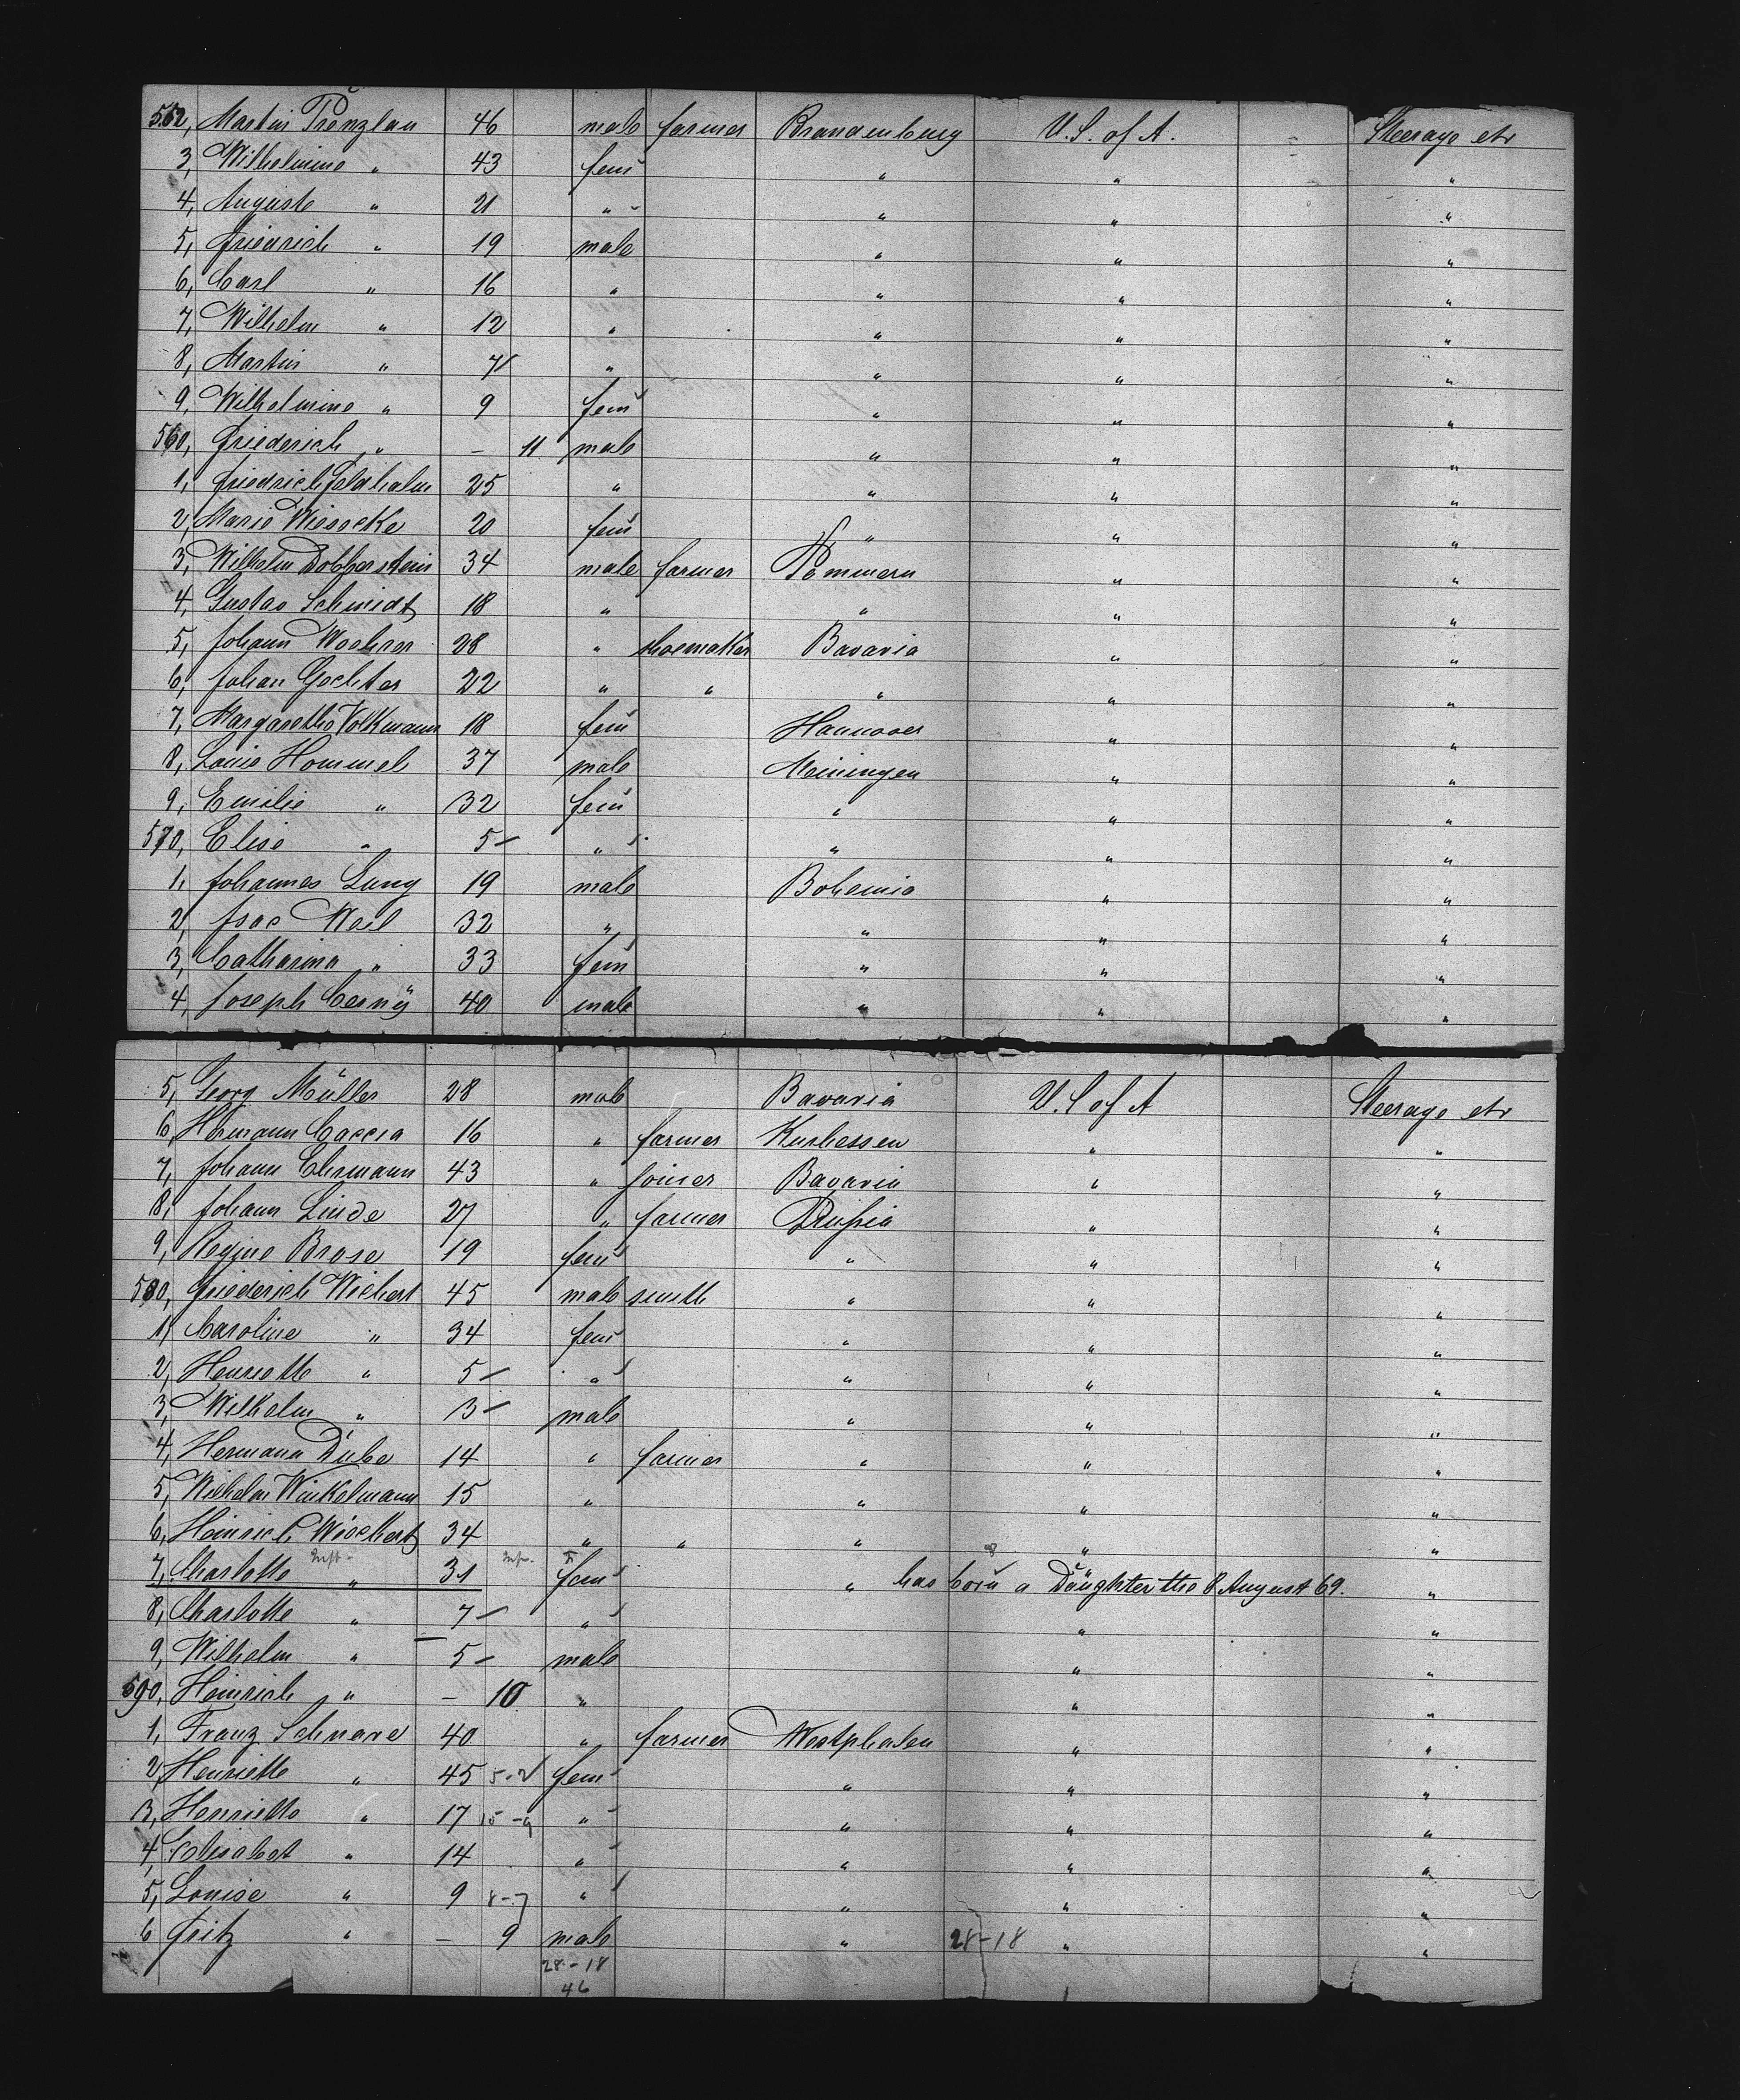 552, Martin Prenzlau 46 male farmer Brandenburg U.S. of A. Steerage etr
3, Wilhelmine " 43 fem " " "
4, Auguste " 21 " " " "
5, Friedrich " 19 male " " "
6, Carl " 16 " " " "
7, Wilhelm " 12 " " " "
8, Martin " 7 " " " "
9, Wilhelmine " 9 fem " " "
560, Friederich " – 11 male " " "
1, Friedrich Feldhalm 25 " " " "
2, Marie Wiesecke 20 fem " " "
3, Wilhelm Dobberstein 34 male farmer Pommern " "
4, Gustav Schmidt 18 " " " "
5, Johann Woehrer 28 " shoemaker Bavaria " "
6, Johan Gechter 22 " " " " "
7, Margarethe Volkmann 18 fem Hannover " "
8, Louis Hommel 37 male Meiningen " "
9, Emilie " 32 fem " " "
570, Elise " 5 " " " "
1, Johannes Lung 19 male Bohemia " "
2, Isac Weil 32 " " " "
3, Catharina " 33 fem " " "
4, Joseph Cerny 40 male " " "
5, Georg Müller 28 male Bavaria U.S of A Steerage etr
6 Hermann Caccia 16 " farmer Kurhessen " "
7, Johann Ehrmann 43 " joiner Bavaria " "
8, Johann Linde 27 " farmer Prussia " "
9, Regine Brose 19 fem " " "
580, Friederich Wichert 45 male smith " " "
1, Caroline " 34 fem " " "
2, Henriette " 5 " " " "
3, Wilhelm " 3 male " " "
4, Hermann Dube 14 " farmer " " "
5, Wilhelm Winkelmann 15 " " " "
6, Heinrich Wiechert 34 " " " " "
7, Charlotte " 31 fem " has born a Daughter the 8 August 69. "
8, Charlotte " 7 " " "
9, Wilhelm " 5 male " "
590, Heinrich " – 10 " " "
1, Franz Schnare 40 " farmer Westphalen " "
2, Henriette " 45 5-2 fem " " "
3, Henriette " 17 15-9 " " " "
4, Elisabet " 14 " " " "
5, Louise " 9 8-7 " " " "
6 Fritz " – 9 male " 28-18 " "
28-18
46